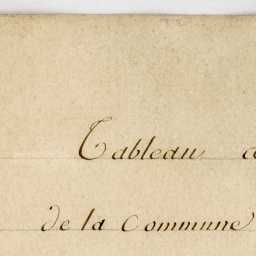 Tableau
de la Commune